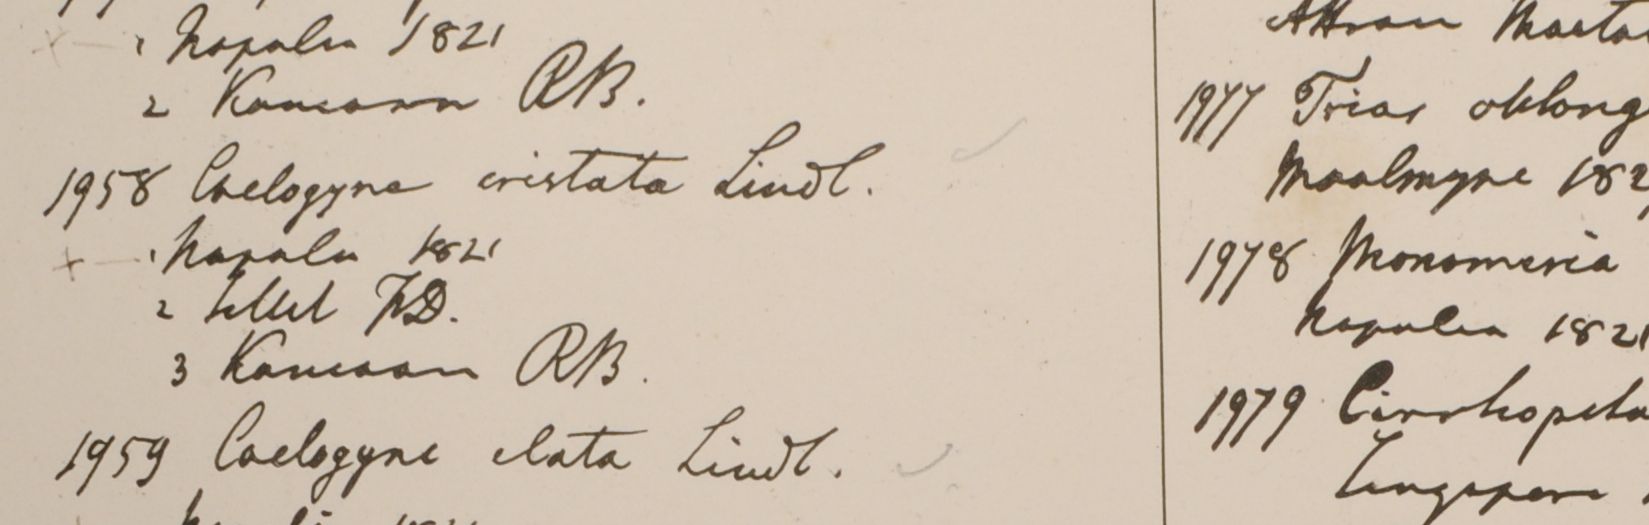 1 Napalia 1821
2 Kamaon RB.
1958 Coelogyne cristata Lindl.
1 Napalia 1821
2 Sillet FD.
3 Kamaon RB.
1959 Coelogyne elata Lindl.
1821
Attran Marta
1977 Trias oblong
Moalmyne 182
1978 Monomeria
Napalia 1821
1979 Cirrhopeta
Singapore